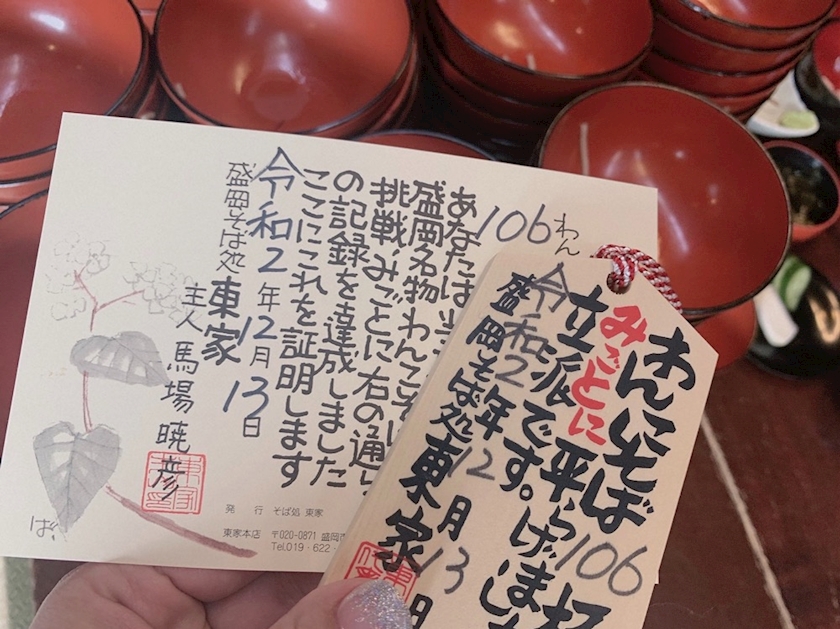 106わん
あなたは当
盛岡名物わんこそば
挑戦みごとに右の通り
の記録を達成しました
ここにこれを証明します
令和2年12月13日
盛岡そば処 東家
主人 馬場暁彦
そば
発行 そば処 東家
東家本店 〒020-0871 盛岡市
Tel.019-622-
わんこそば106杯
みごとに平らげまし
立派です。
令和2年12月13日
盛岡そば処東家